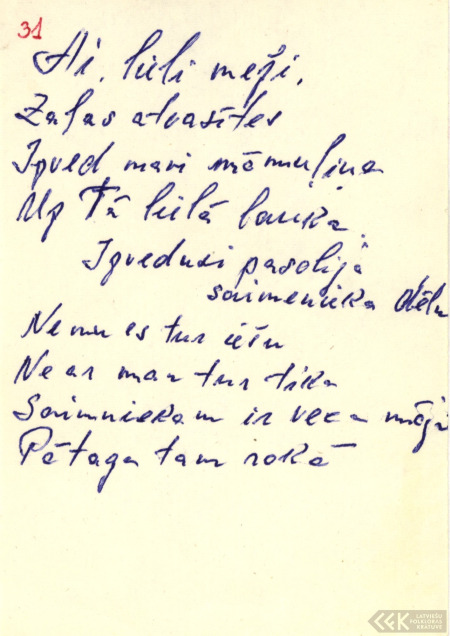 31
Ai, lieli meži,
Zaļas atvasītes
Izved mani māmuļiņa
Uz Tā lielā lauka.
Izvedusi pasolīja
saimenieka dēlu
Nemu es tur iešu
Ne ar man tur tika
Saimniekam ir veca māja
Pātaga tam rokā
LATVIEŠU
FOLKLORAS
KRĀTUVE